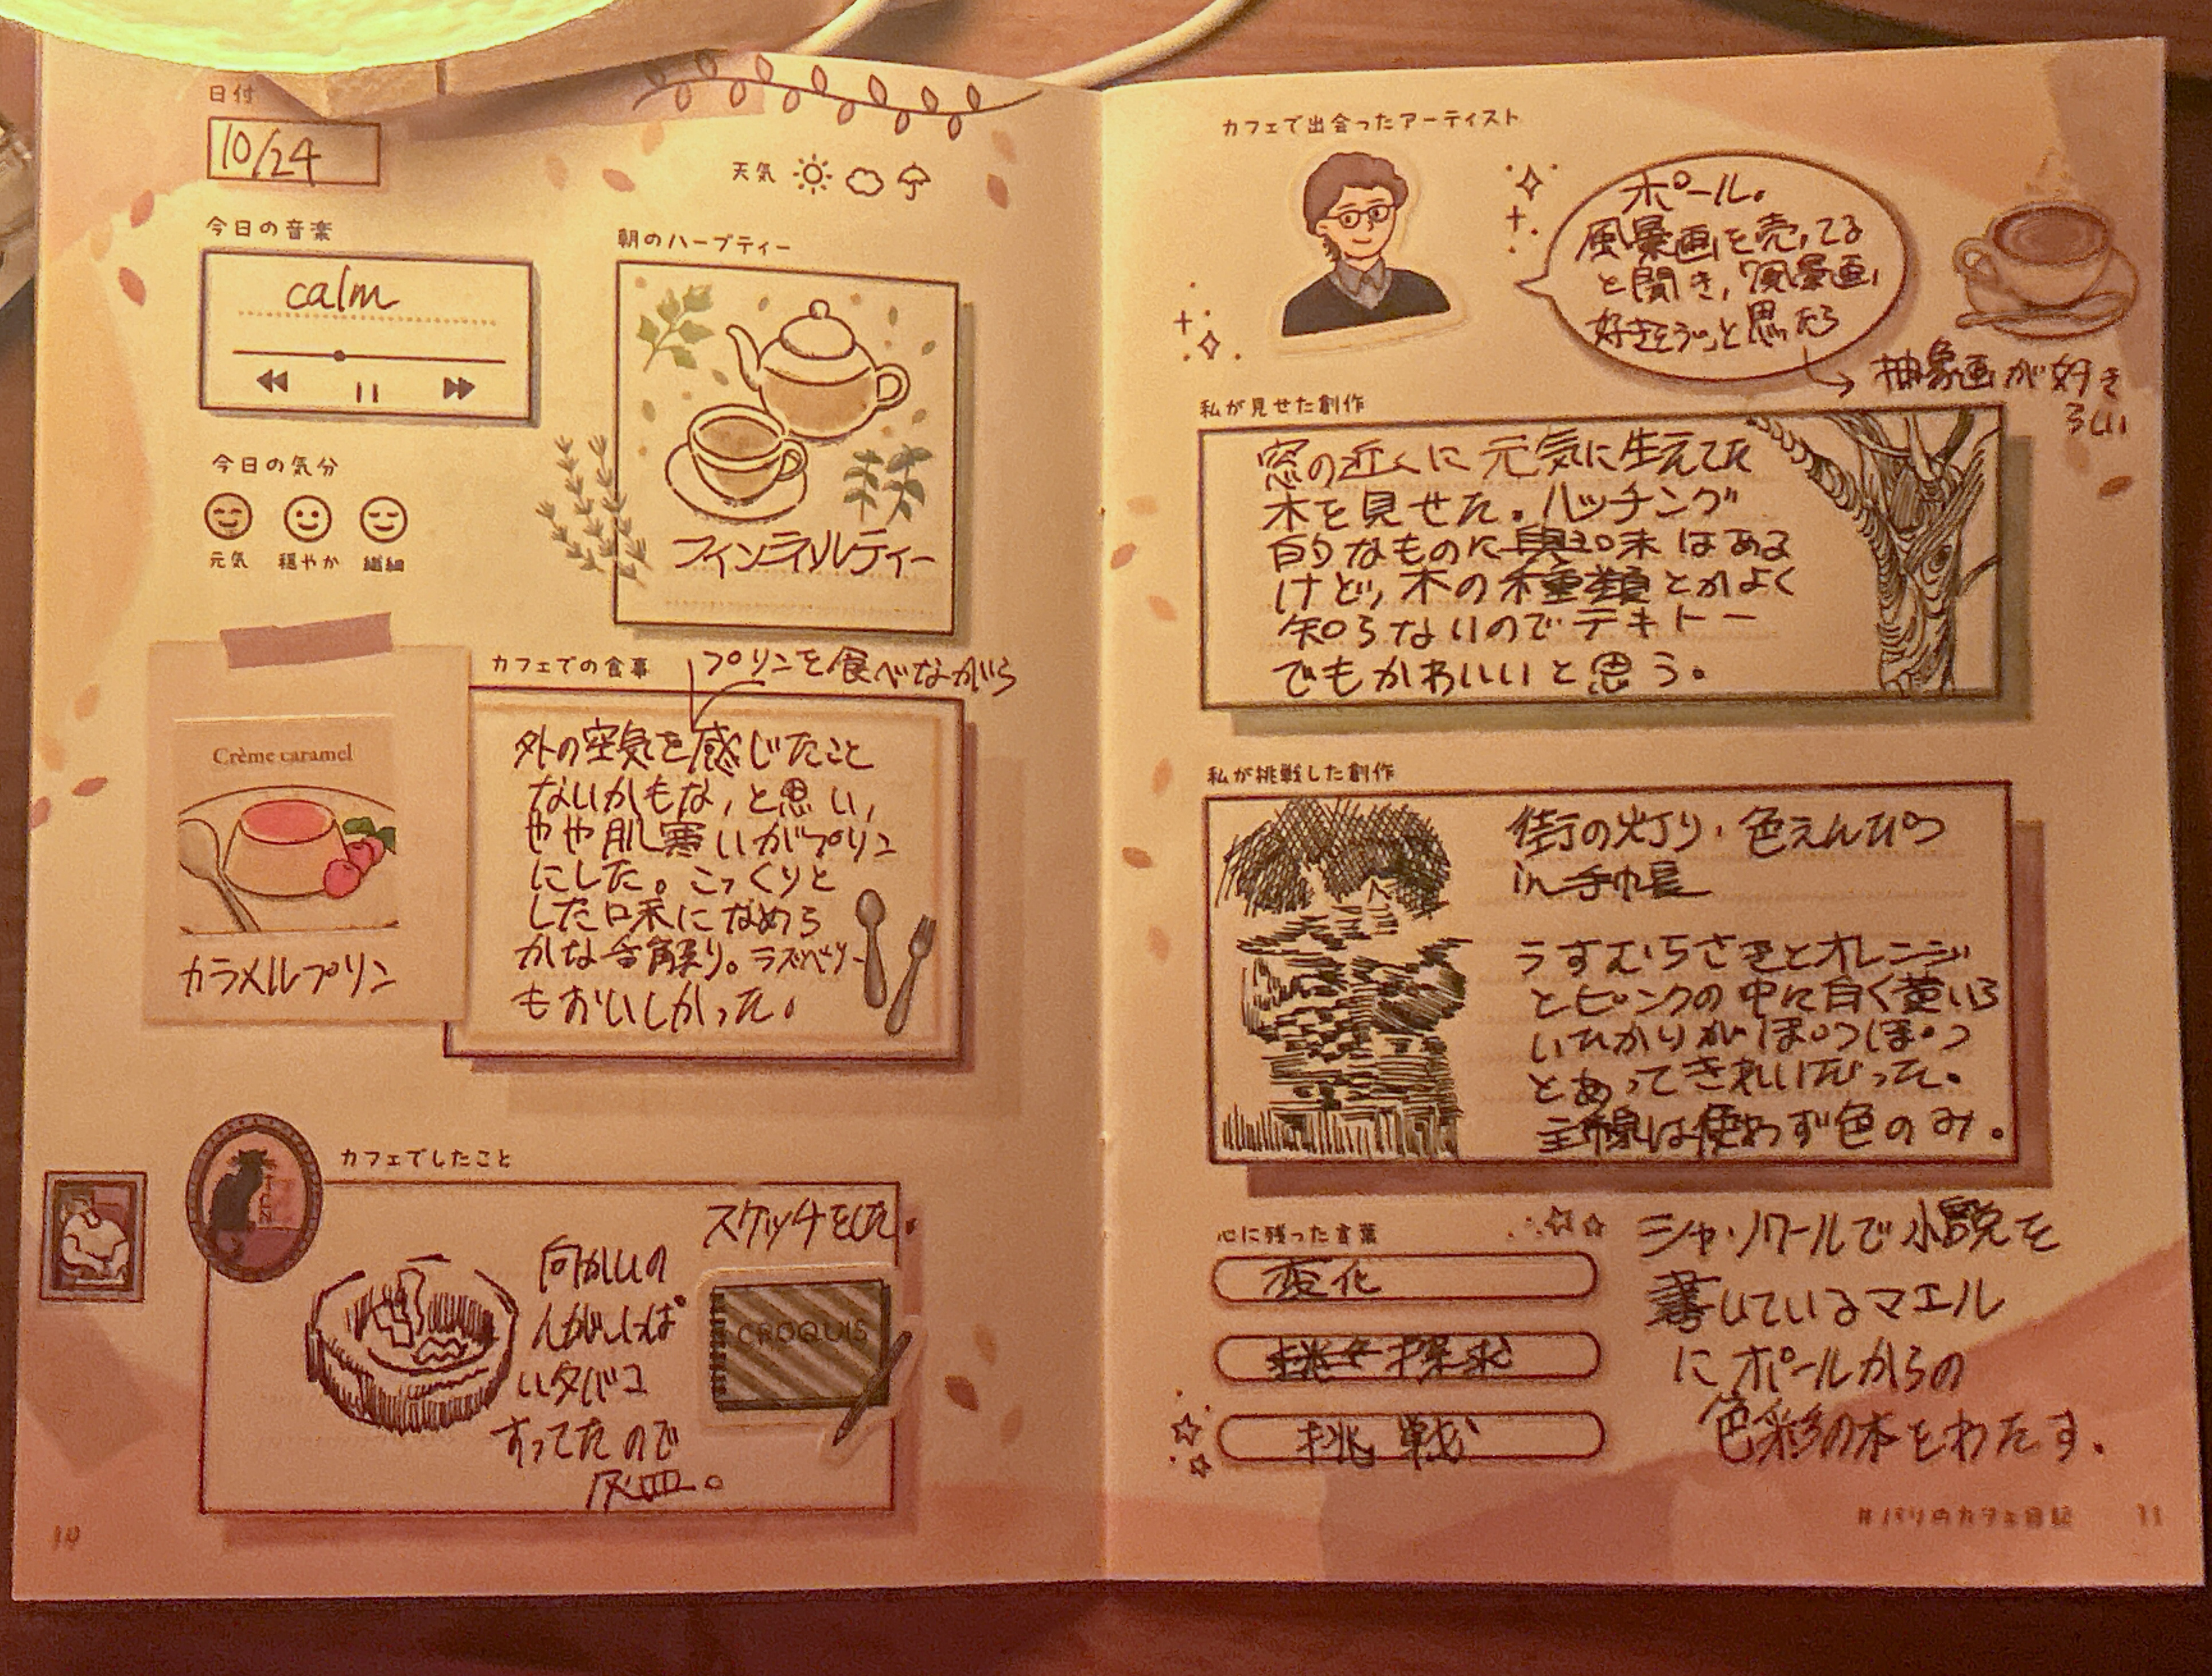 日付
10/24
天気
今日の音楽
calm
今日の気分
元気
穏やか
繊細
朝のハーブティー
フィンネルティー
カフェでの食事
プリンを食べながら
外の空気を感じたこと
ないかもな,と思い,
やや肌寒いがプリン
にした。こっくりと
した口味になめら
かな舌触り。ラズベリー
もおいしかった。
Crème caramel
カラメルプリン
カフェでしたこと
スケッチをした.
向かいの
人がいっぱ
いタバコ
すってたので
灰皿。
CROQUIS
10
カフェで出会ったアーティスト
ポール。
風景画を売ってる
と聞き,「風景画,
好きそう」と思ったら
抽象画が好き
らしい
私が見せた創作
窓の近くに元気に生えてた
木を見せた。ハッチング
的なものに興味はある
けど,木の種類とかよく
知らないのでテキトー
でもかわいいと思う。
私が挑戦した創作
街の灯り・色えんぴつ
in 手帖
うすむらさきとオレンジ
とピンクの中に白く黄いろ
いひかりがぽつぽつ
とあってきれいだった。
主線は使わず色のみ。
心に残った言葉
変化
探求
挑戦
シャ・ノワールで小説を
書いているマエル
にポールからの
色彩の本をわたす.
#パリのカフェ日記
11